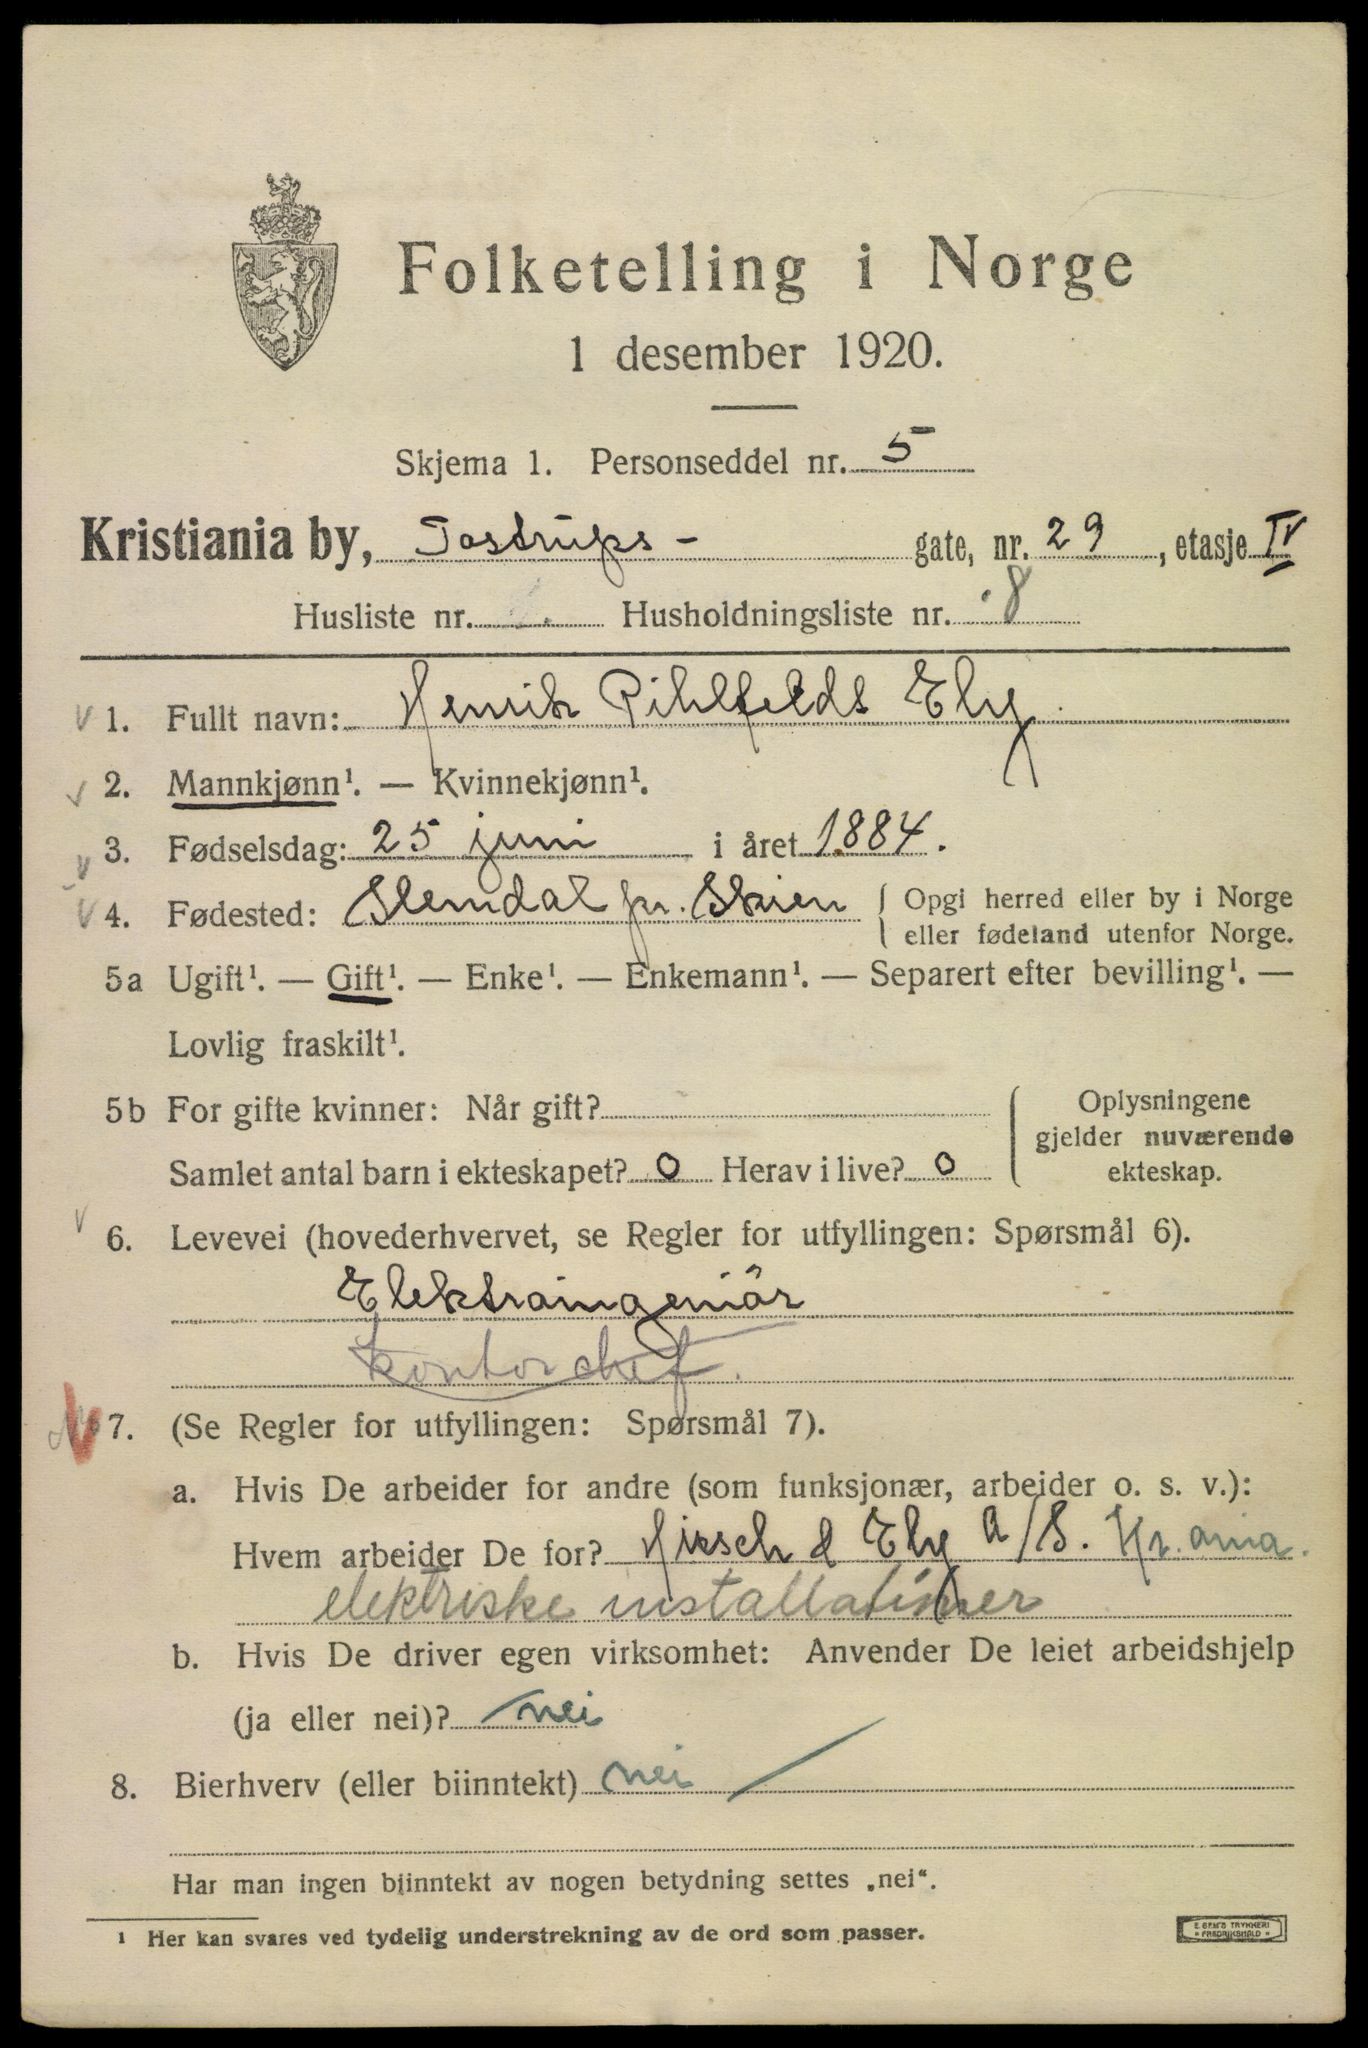 Folketelling i Norge
1 desember 1920.
Skjema 1. Personseddel nr. 5
Kristiania by, Tostrups- gate, nr. 29, etasje IV
Husliste nr. Husholdningsliste nr. 8
v 1. Fullt navn: Henrik Pihlfeldt Ely
v 2. Mannkjønn¹. — Kvinnekjønn¹.
v 3. Fødselsdag: 25 juni i året 1884.
v 4. Fødested: Slemdal pr. Skien { Opgi herred eller by i Norge
eller fødeland utenfor Norge.
5a Ugift¹. — Gift¹. — Enke¹. — Enkemann¹. — Separert efter bevilling¹. —
Lovlig fraskilt¹.
5b For gifte kvinner: Når gift? { Oplysningene
gjelder nuværende
Samlet antal barn i ekteskapet? 0 Herav i live? 0 ekteskap.
v 6. Levevei (hovederhvervet, se Regler for utfyllingen: Spørsmål 6).
Elektroingeniör
kontorchef.
7. (Se Regler for utfyllingen: Spørsmål 7).
a. Hvis De arbeider for andre (som funksjonær, arbeider o. s. v.):
Hvem arbeider De for? Hirsch & Ely A/S. Kr.ania.
elektriske installationer
b. Hvis De driver egen virksomhet: Anvender De leiet arbeidshjelp
(ja eller nei)? nei
8. Bierhverv (eller biinntekt) nei
Har man ingen biinntekt av nogen betydning settes „nei“.
¹ Her kan svares ved tydelig understrekning av de ord som passer.
E. SEM'S TRYKKERI
* FREDRIKSHALD *